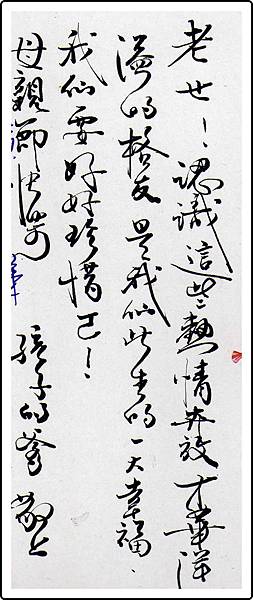 老世!認識這些熱情奔放才華洋
溢的格友是我們此生的一大幸福.
我們要好好珍惜
母親節快樂 孩子的爹 敬上